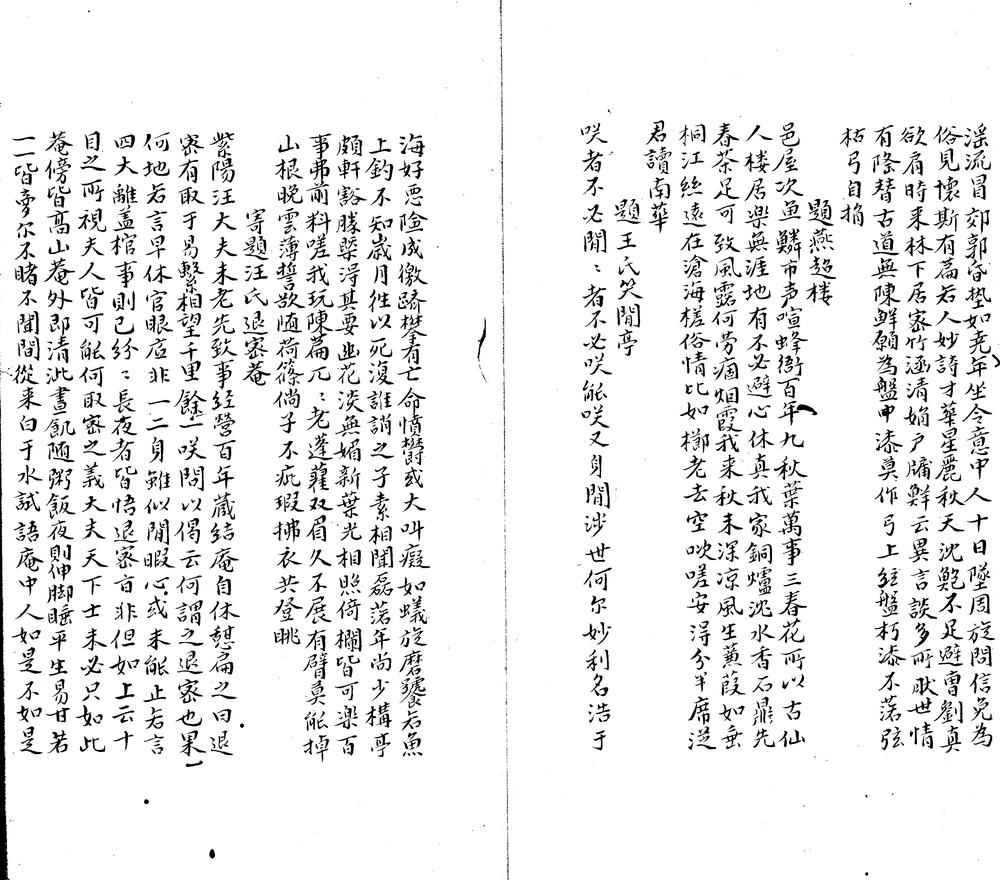 淫流冒郊郭昏垫如堯年坐令意中人十日墜周旋問信免為
俗見懷斯有篇若人妙詩才華星麗秋天沈鮑不足避曹劉真
欲肩時来林下居家竹涵清娟户牖鮮云異言談多所耽世情
有隆替古道無陳鮮願為盤中漆莫作弓上弦盤朽漆不落弦
枯弓自捐
題燕超楼
邑屋次魚鱗市声喧蜂衙百年九秋葉萬事三春花所以古仙
人楼居樂無涯地有不必避心休真我家銅爐沈水香石鼎先
春茶足可致風露何勞痼烟霞我来秋未深凉風生蒹葭如垂
桐江絲遠在滄海槎俗情比如挪老去空咲嗟安淂分半席淫
君讀南華
題王氏笑閒亭
咲者不必閒〻者不必咲能咲又身閒涉世何尔妙利名浩于
海好悪險成徼躋攀有亡命憤欝或大叫癡如蟻旋磨饕若魚
上釣不知歳月徃以死復誰誚之子素相聞磊落年尚少構亭
頗軒豁勝槩淂其要幽花淡無媚新葉光相照倚欄皆可樂百
事弗前料嗟我玩陳篇兀〻老蓬藋双眉久不展有臂莫能掉
山根晚雲薄誓欲随荷篠倘子不疵瑕拂衣共登眺
寄題汪氏退宻菴
紫陽汪大夫未老先致事经營百年蔵结庵自休憩扁之曰退
宻有取于易繋相望千里餘一咲問以偈云何謂之退宻也果
何地若言早休官眼底非一二身雖似閒暇心或未能止若言
四大離盖棺事則已纷〻長夜者皆悟退宻旨非但如上云十
目之所視夫人皆可能何取宻之義大夫天下士未必只如此
菴傍皆髙山菴外即清泚晝飢随粥飯夜則伸脚睡平生易甘若
一一皆夣尔不睹不聞間從来白于水試語庵中人如是不如是